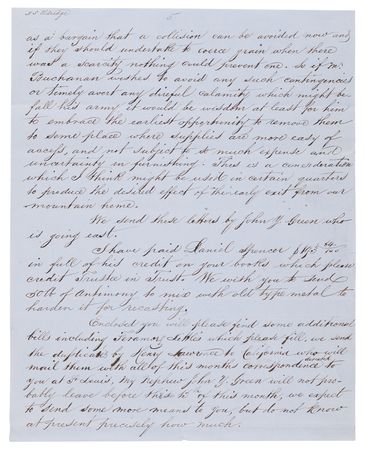 H. S. Eldredge 5
as a bargain that a collision can be avoided now and
if they should undertake to coerce grain when there
was a scarcity nothing could prevent one. So if Mr.
Buchanan wishes to avoid any such contingencies
or timely avert any direful calamity which might be
fall this army it would be wisdom at least for him
to embrace the earliest opportunity to remove them
to some place where supplies are more easy of
access, and not subject to so much expense and
uncertainty in furnishing. This is a consideration
which I think might be used in certain quarters
to produce the desired effect of their early exit from our
mountain home.
We send these letters by John Y. Green who
is going east.
I have paid Daniel Spencer
in full of his credit on your books which please
credit Trustee in Trust. We wish you to send
of Antimony to mix with old type metal to
harden it for recasting.
Enclosed you will please find some additional
bills including which please fill, we send
the duplicate by Henry Lawrence to California who will
mail them with all of this months correspondence directed to
you at St Louis, My nephew John Y. Green will not pro-
bably leave before the of this month, we expect
to send some more means to you, but do not know
at present precisely how much.